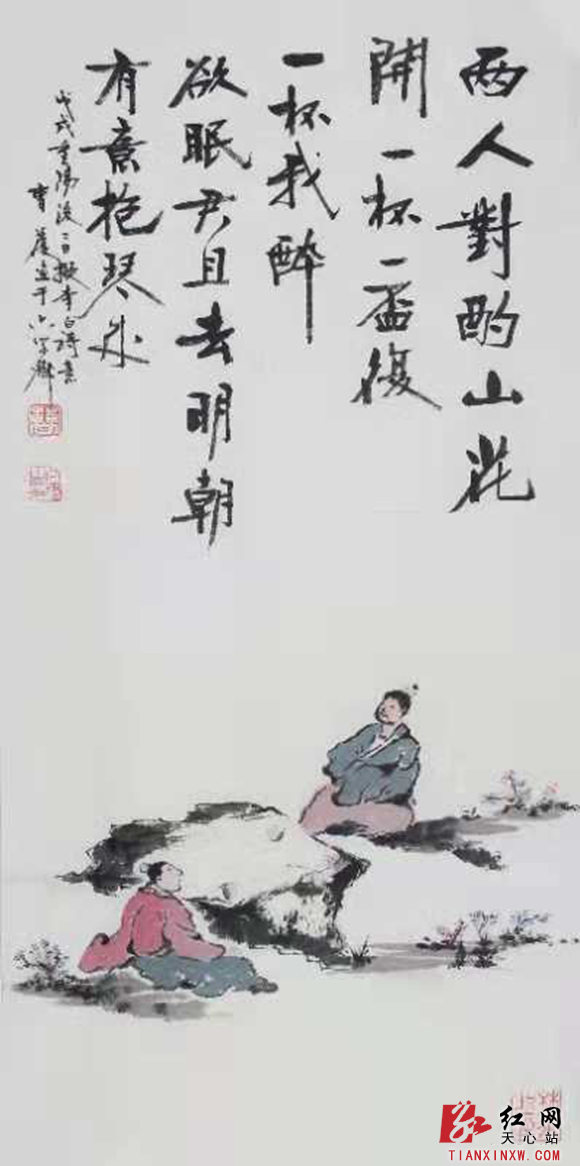 两人對酌山花
開一杯一盃復
一杯我醉
欲眠君且去明朝
有意抱琴来
戊戌重陽後二日李白詩意
红网
天心站
TIANXINXW.COM